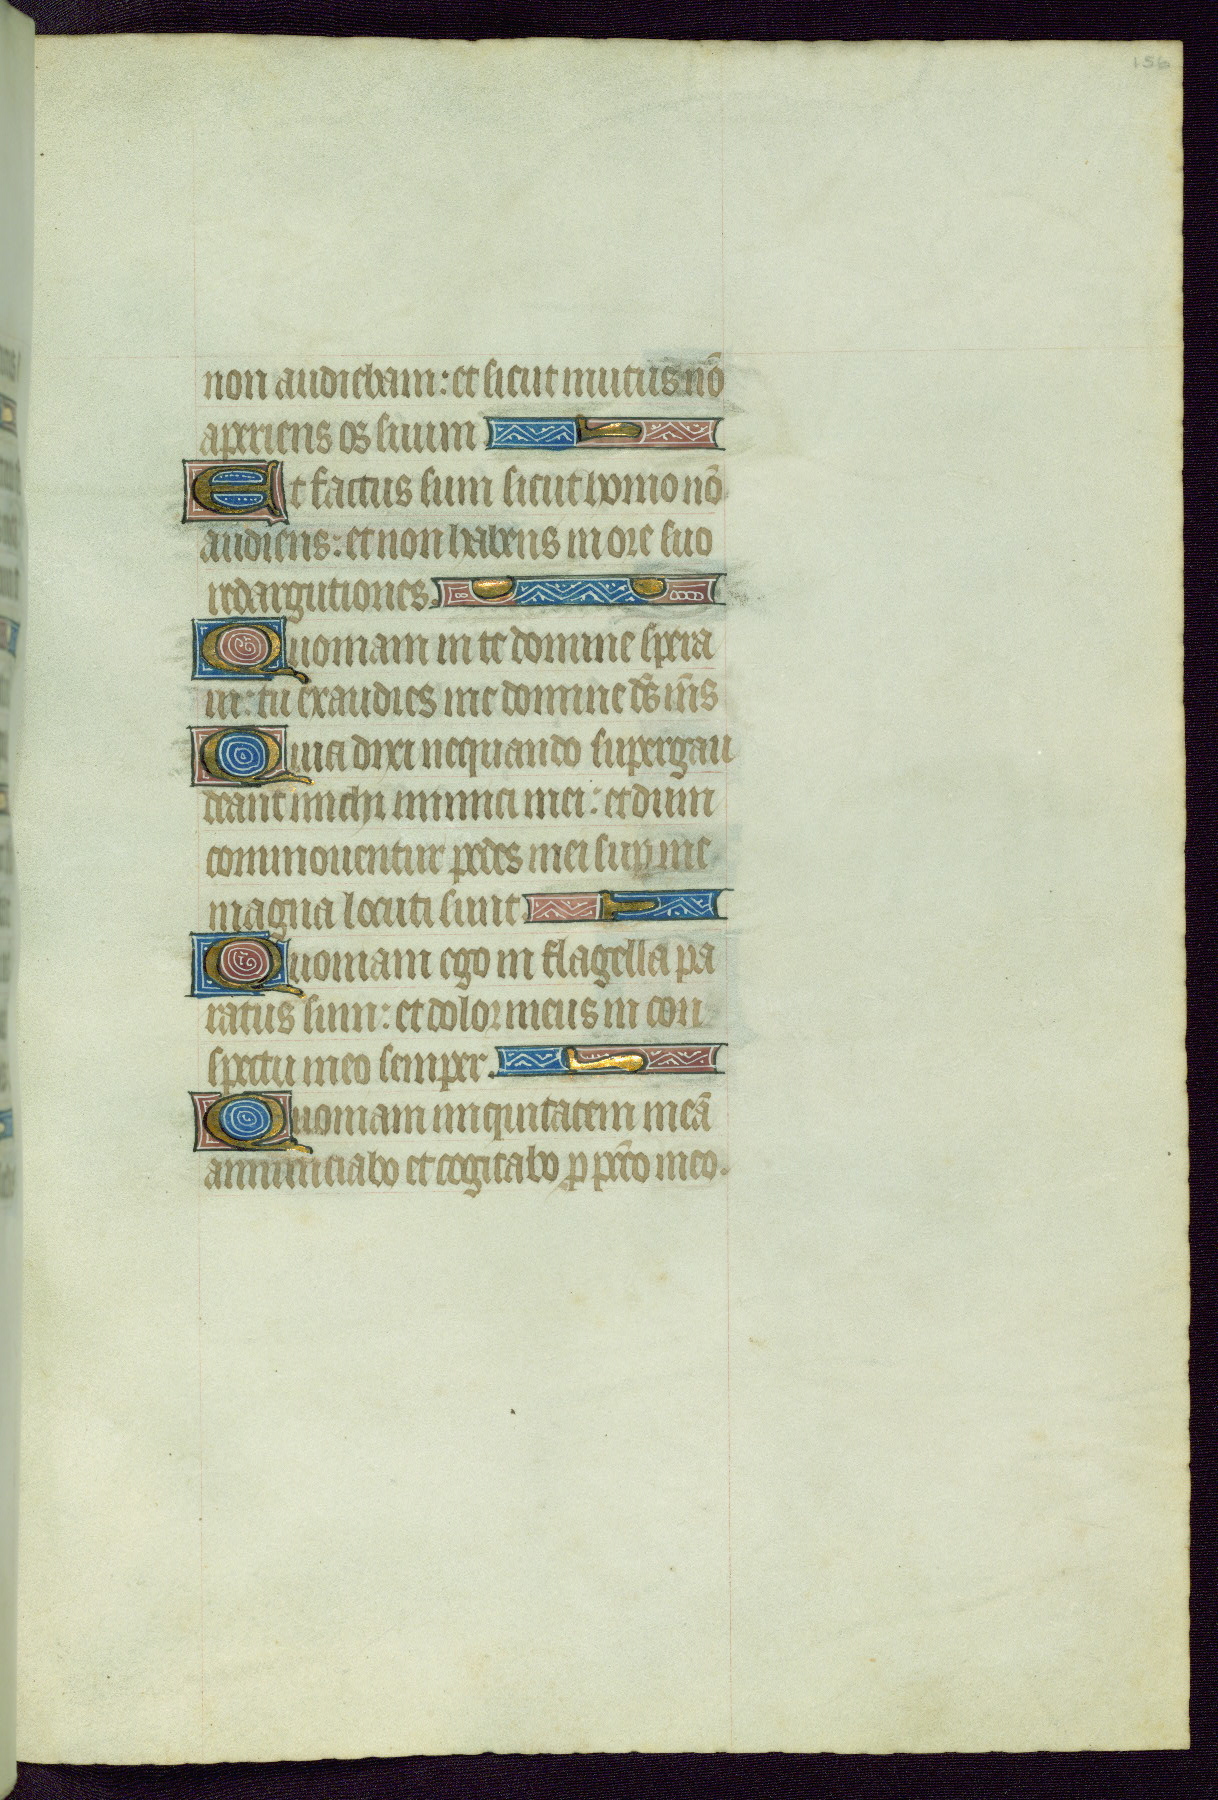 156
non audiebam: et sicut mutus nō
aperiens os suum
Et factus sum sicut homo nō
audiens: et non habens in ore suo
redargutiones.
Quoniam in te domine spera
ui: tu exaudies me domine ds̄ m̄s
Quia dixi nequando supergau
deant michi inimici mei: et dum
commouentur pedes mei sup̱ me
magna locuti sunt.
Quoniam ego in flagella pa
ratus sum: et dolor meus in con
spectu meo semper.
Quoniam iniquitatem meā
annunciabo et cogitabo p̱ pc̄co meo.